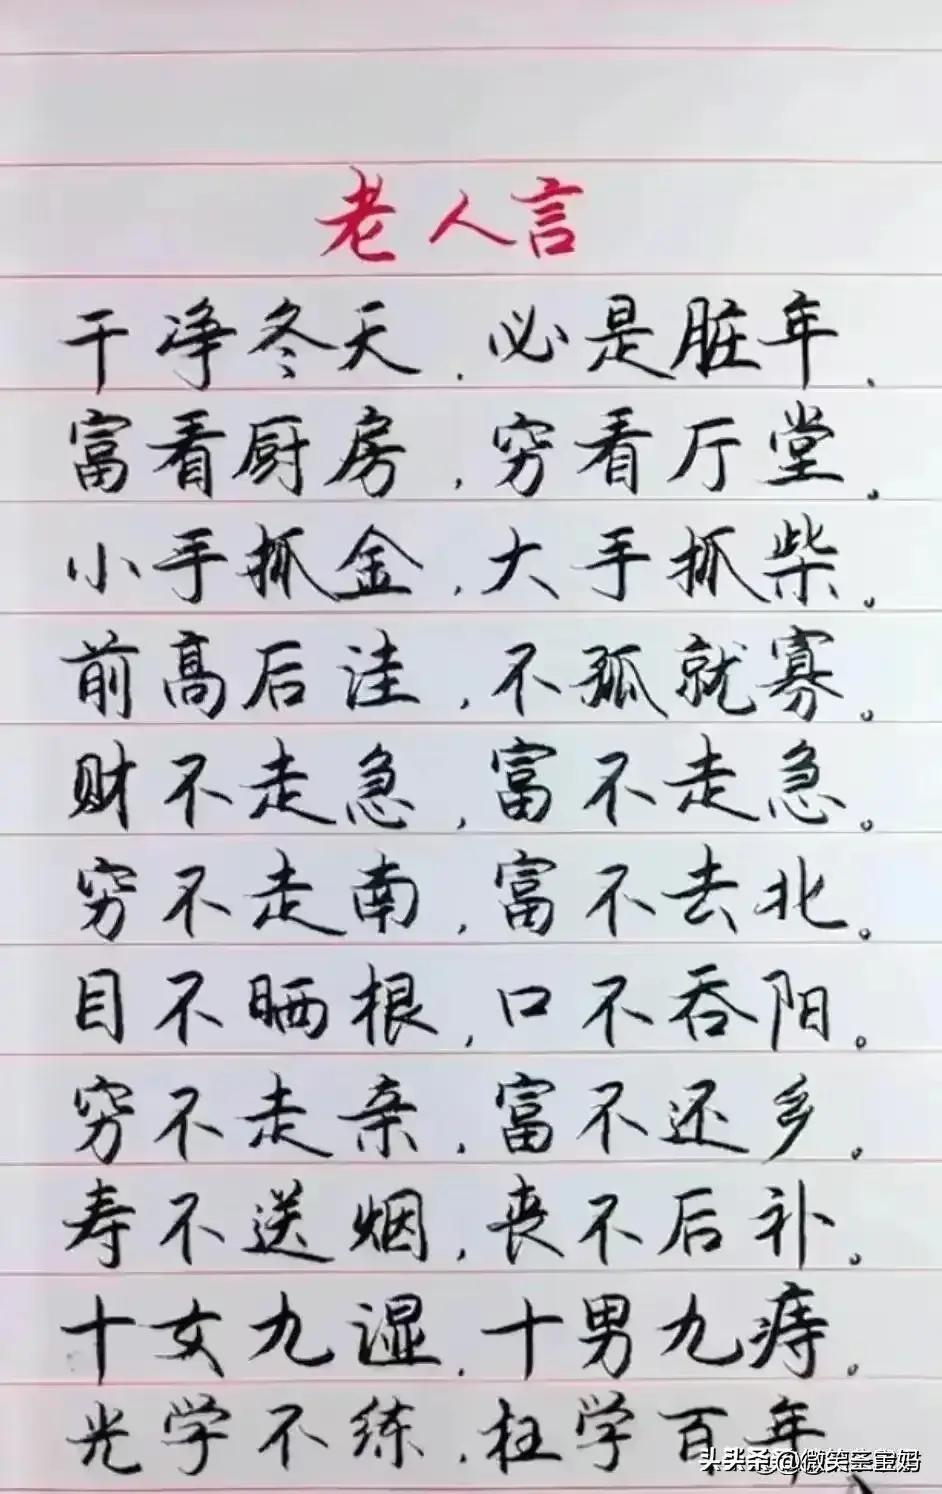 老人言
干净冬天，必是脏年，
富看厨房，穷看厅堂。
小手抓金，大手抓柴。
前高后洼，不孤就寡。
财不走急，富不走急。
穷不走南，富不去北。
目不晒根，口不吞阳。
穷不走亲，富不还乡。
寿不送烟，丧不后补。
十女九湿，十男九痔。
光学不练，枉学百年
头条@微笑宝妈